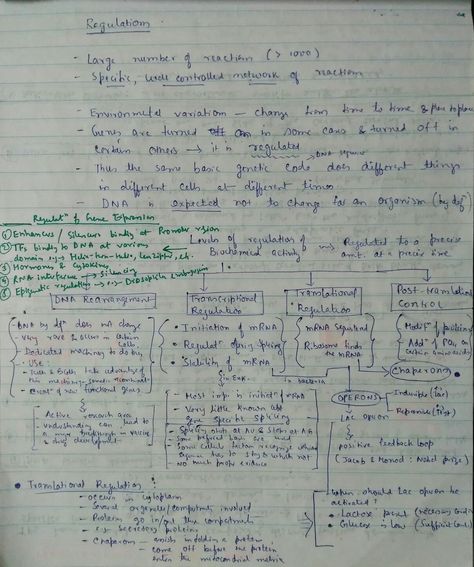 Regulation
- Large number of reaction (> 1000)
- Specific, well controlled network of reaction
- Environmental variation — change from time to time & place to place
- Genes are turned on in some cases & turned off in
certain others → it is regulated
- Thus the same basic genetic code does different things
in different cells at different times
- DNA is expected not to change for an organism (by def
Regulatⁿ of Gene Expression
① Enhancers / Silencers binding at Promoter region
② TFs binding to DNA at various
domain e.g → Helix-turn-Helix, leu zipper, etc.
③ Hormones & Cytokines
④ RNA interference → Silencing
⑤ Epigenetic regulation → e.g → Drosophila
Levels of regulation of
Biochemical activity
Regulated to a precise
amt. at a precise time
DNA Rearrangement
- DNA by defⁿ does not change
- Very rare & occurs in certain
cells
- Dedicated machinery to do this
- USE:
- advantage of
this machinery
- new functional genes
Active research area
- Understanding can lead to
a major breakthrough in vaccine
& drug development
Transcriptional
Regulation
• Initiation of mRNA
• Regulatⁿ of splicing
• Stability of mRNA
in Euk.
- Most imp is initiatⁿ of mRNA
- Very little known abt
gene specific splicing
- Splicing starts at AU & stops at AG
- Some cellular factor recognizes which
sequence has to stay & which not
- No much proof evidence
Translational
Regulation
mRNA sequestered
Ribosome finds
the mRNA
in bacteria
Post-translational
Control
Modifⁿ of protein
Addⁿ of PO₄ on
certain amino acids
Chaperons
OPERONS
Inducible (lac)
Repressible (trp)
Lac operon
positive feedback loop
(Jacob & Monod : Nobel prize)
When should Lac operon be
activated?
• Lactose present (necessary
• Glucose is low (Sufficient
• Translational Regulation :
- occurs in cytoplasm
- Several organelles/compartments involved
- Proteins go in/out the compartments
- e.g. secretory proteins
- Chaperon — assists in folding a protein
- come off before the protein
enters the mitochondrial matrix